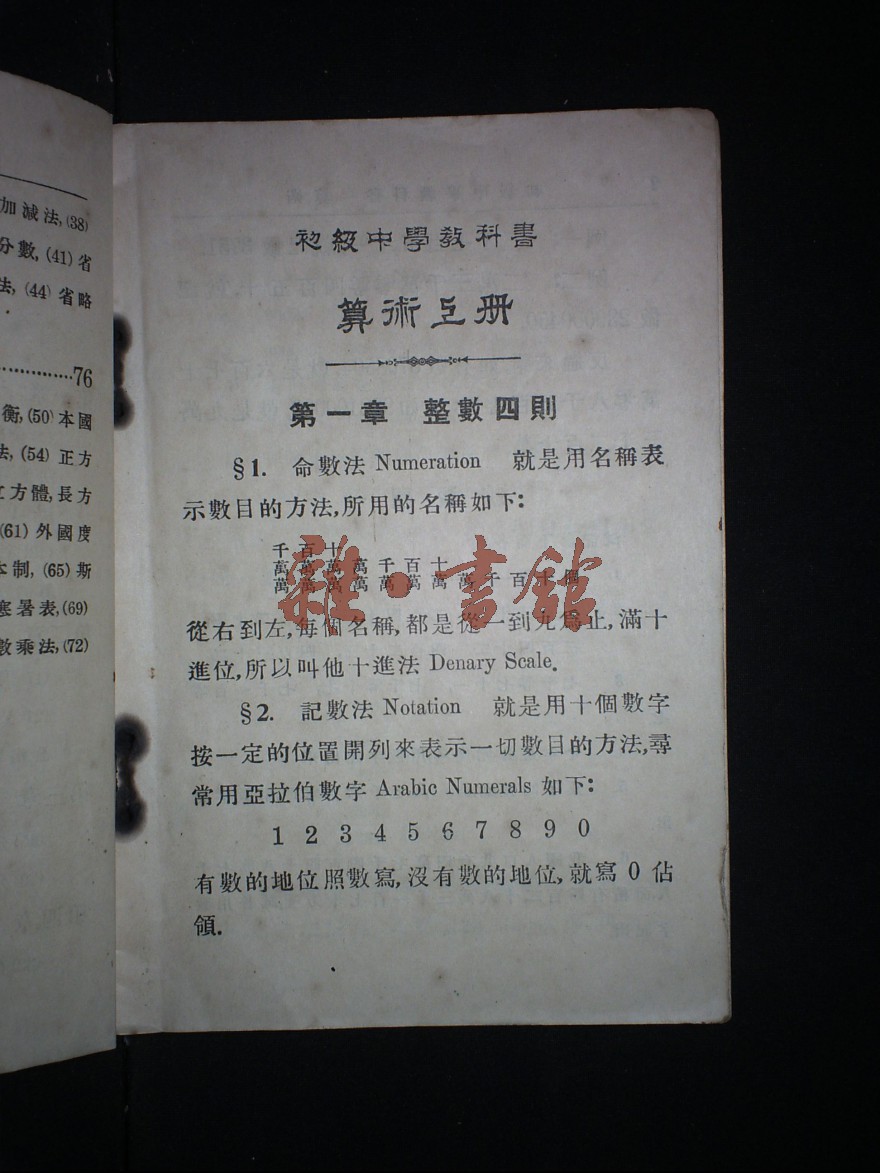 加減法, (38)
分數, (41) 省
法, (44) 省略
76
衡, (50) 本國
法, (54) 正方
方體, 長方
(61) 外國度
本制, (65) 斯
寒暑表, (69)
數乘法, (72)
初級中學教科書
算術上册
第一章 整數四則
§1. 命數法 Numeration 就是用名稱表
示數目的方法, 所用的名稱如下:
千百十
萬萬萬萬千百十
萬萬萬萬萬萬萬萬千百十個
從右到左, 每個名稱, 都是從一到九爲止, 滿十
進位, 所以叫他十進法 Denary Scale.
§2. 記數法 Notation 就是用十個數字
按一定的位置開列來表示一切數目的方法, 尋
常用亞拉伯數字 Arabic Numerals 如下:
1 2 3 4 5 6 7 8 9 0
有數的地位照數寫, 沒有數的地位, 就寫 0 佔
領.
雜·書館